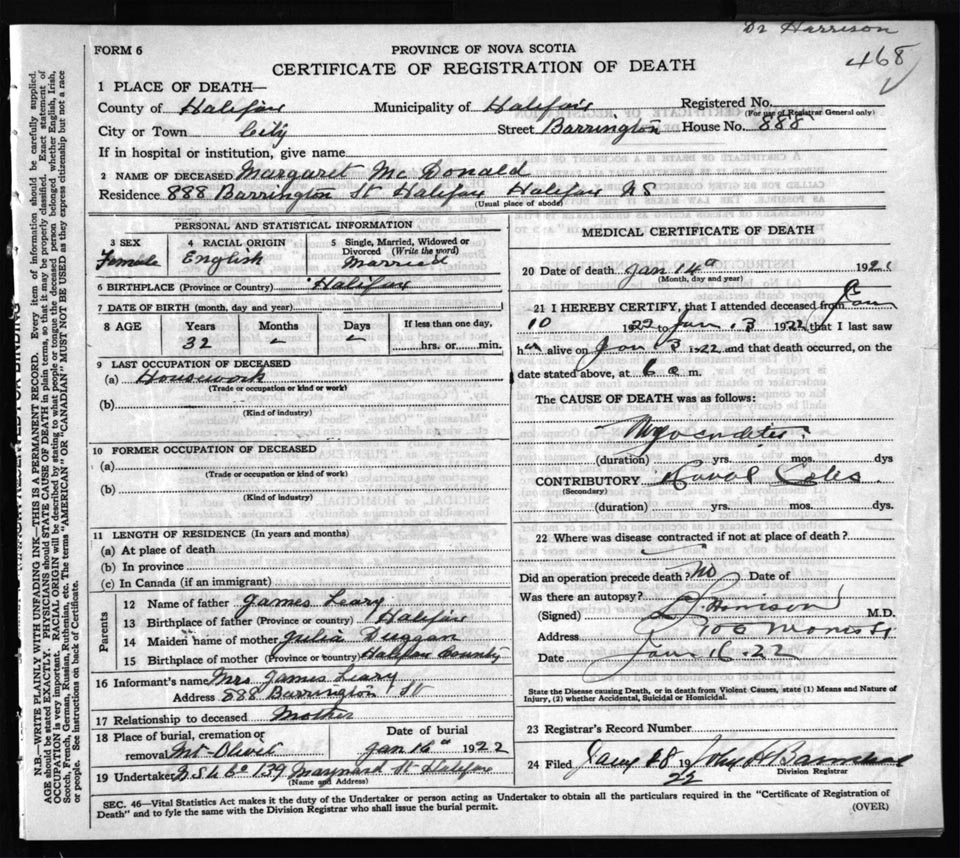 Dr Harrison
468
FORM 6
PROVINCE OF NOVA SCOTIA
CERTIFICATE OF REGISTRATION OF DEATH
1 PLACE OF DEATH—
County of Halifax Municipality of Halifax Registered No.
(For use of Registrar General only)
City or Town City Street Barrington House No. 888
If in hospital or institution, give name
2 NAME OF DECEASED Margaret Mc Donald
Residence 888 Barrington St Halifax Halifax NS
(Usual place of abode)
PERSONAL AND STATISTICAL INFORMATION
3 SEX 4 RACIAL ORIGIN 5 Single, Married, Widowed or Divorced (Write the word)
Female English Married
6 BIRTHPLACE (Province or Country) Halifax
7 DATE OF BIRTH (month, day and year)
8 AGE Years Months Days If less than one day,
32 - - hrs. or min.
9 LAST OCCUPATION OF DECEASED
(a) Housework
(Trade or occupation or kind or work)
(b)
(Kind of industry)
10 FORMER OCCUPATION OF DECEASED
(a)
(Trade or occupation or kind of work)
(b)
(Kind of industry)
11 LENGTH OF RESIDENCE (In years and months)
(a) At place of death
(b) In province
(c) In Canada (if an immigrant)
Parents
12 Name of father James Leary
13 Birthplace of father (Province or country) Halifax
14 Maiden name of mother Julia Duggan
15 Birthplace of mother (Province or country) Halifax County
16 Informant's name Mrs James Leary
Address 888 Barrington St
17 Relationship to deceased Mother
18 Place of burial, cremation or Date of burial
removal Mt Olivet Jan 16th 1922
19 Undertaker N S U Co 139 Maynard St Halifax
(Name and Address)
MEDICAL CERTIFICATE OF DEATH
20 Date of death Jan 14th 192
(Month, day and year)
21 I HEREBY CERTIFY, that I attended deceased from Jan
10 1922 to Jan 13 1922 that I last saw
h alive on Jan 13 1922 and that death occurred, on the
date stated above, at 6 a m.
The CAUSE OF DEATH was as follows:
Myocarditis
(duration) yrs. mos. dys
CONTRIBUTORY
(Secondary)
(duration) yrs. mos. dys.
22 Where was disease contracted if not at place of death?
Did an operation precede death? No Date of
Was there an autopsy?
(Signed) Harrison M.D.
Address 100 Morris St
Date Jan 16.22
State the Disease causing Death, or in death from Violent Causes, state (1) Means and Nature of
Injury, (2) whether Accidental, Suicidal or Homicidal.
23 Registrar's Record Number
24 Filed 28 19 22 John
Division Registrar
SEC. 46—Vital Statistics Act makes it the duty of the Undertaker or person acting as Undertaker to obtain all the particulars required in the "Certificate of Registration of
Death" and to fyle the same with the Division Registrar who shall issue the burial permit.
(OVER)
N.B.—WRITE PLAINLY WITH UNFADING INK—THIS IS A PERMANENT RECORD. Every item of information should be carefully supplied.
AGE should be stated EXACTLY. PHYSICIANS should STATE CAUSE OF DEATH in plain terms, so that it may be properly classified. Exact statement of
OCCUPATION is very important. RACIAL ORIGIN will be described by stating to what people or tongue the deceased person belonged whether English, Irish,
Scotch, French, German, Russian, Ruthenian, etc. The terms "AMERICAN" OR "CANADIAN" MUST NOT BE USED as they express citizenship but not a race
or people. See instructions on back of Certificate.